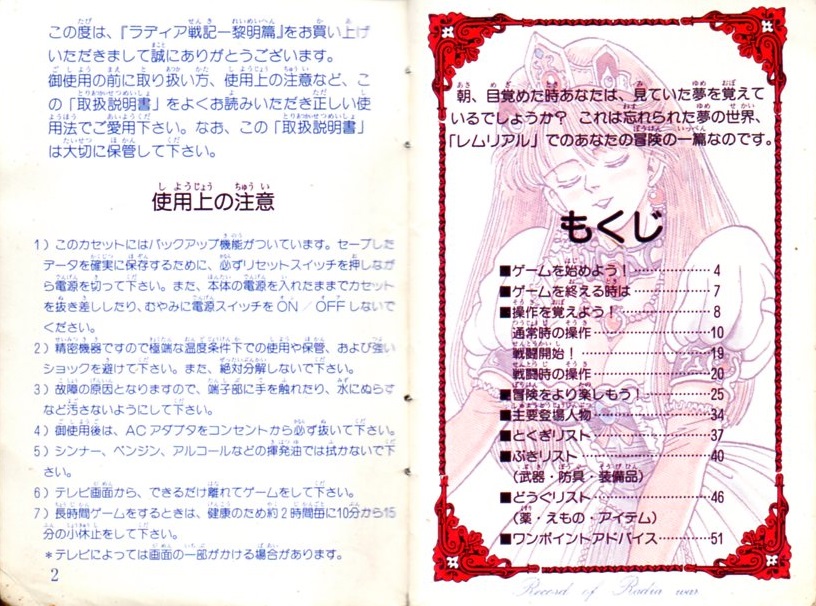 この度は、『ラディア戦記ー黎明篇』をお買い上げ
いただきまして誠にありがとうございます。
御使用の前に取り扱い方、使用上の注意など、こ
の「取扱説明書」をよくお読みいただき正しい使
用法でご愛用下さい。なお、この「取扱説明書」
は大切に保管して下さい。
使用上の注意
1）このカセットにはバックアップ機能がついています。セーブした
データを確実に保存するために、必ずリセットスイッチを押しなが
ら電源を切って下さい。また、本体の電源を入れたままでカセット
を抜き差ししたり、むやみに電源スイッチをON／OFFしないで
ください。
2）精密機器ですので極端な温度条件下での使用や保管、および強い
ショックを避けて下さい。また、絶対分解しないで下さい。
3）故障の原因となりますので、端子部に手を触れたり、水にぬらす
など汚さないようにして下さい。
4）御使用後は、ACアダプタをコンセントから必ず抜いて下さい。
5）シンナー、ベンジン、アルコールなどの揮発油では拭かないで下
さい。
6）テレビ画面から、できるだけ離れてゲームをして下さい。
7）長時間ゲームをするときは、健康のため約2時間毎に10分から15
分の小休止をして下さい。
＊テレビによっては画面の一部がかける場合があります。
2
朝、目覚めた時あなたは、見ていた夢を覚えて
いるでしょうか？ これは忘れられた夢の世界、
「レムリアル」でのあなたの冒険の一篇なのです。
もくじ
■ゲームを始めよう！…………4
■ゲームを終える時は…………7
■操作を覚えよう！……………8
通常時の操作…………………10
戦闘開始！……………………19
戦闘時の操作…………………20
■冒険をより楽しもう！………25
■主要登場人物…………………34
■とくぎリスト…………………37
■ぶきリスト……………………40
（武器・防具・装備品）
■どうぐリスト…………………46
（薬・えもの・アイテム）
■ワンポイントアドバイス……51
Record of Radia war